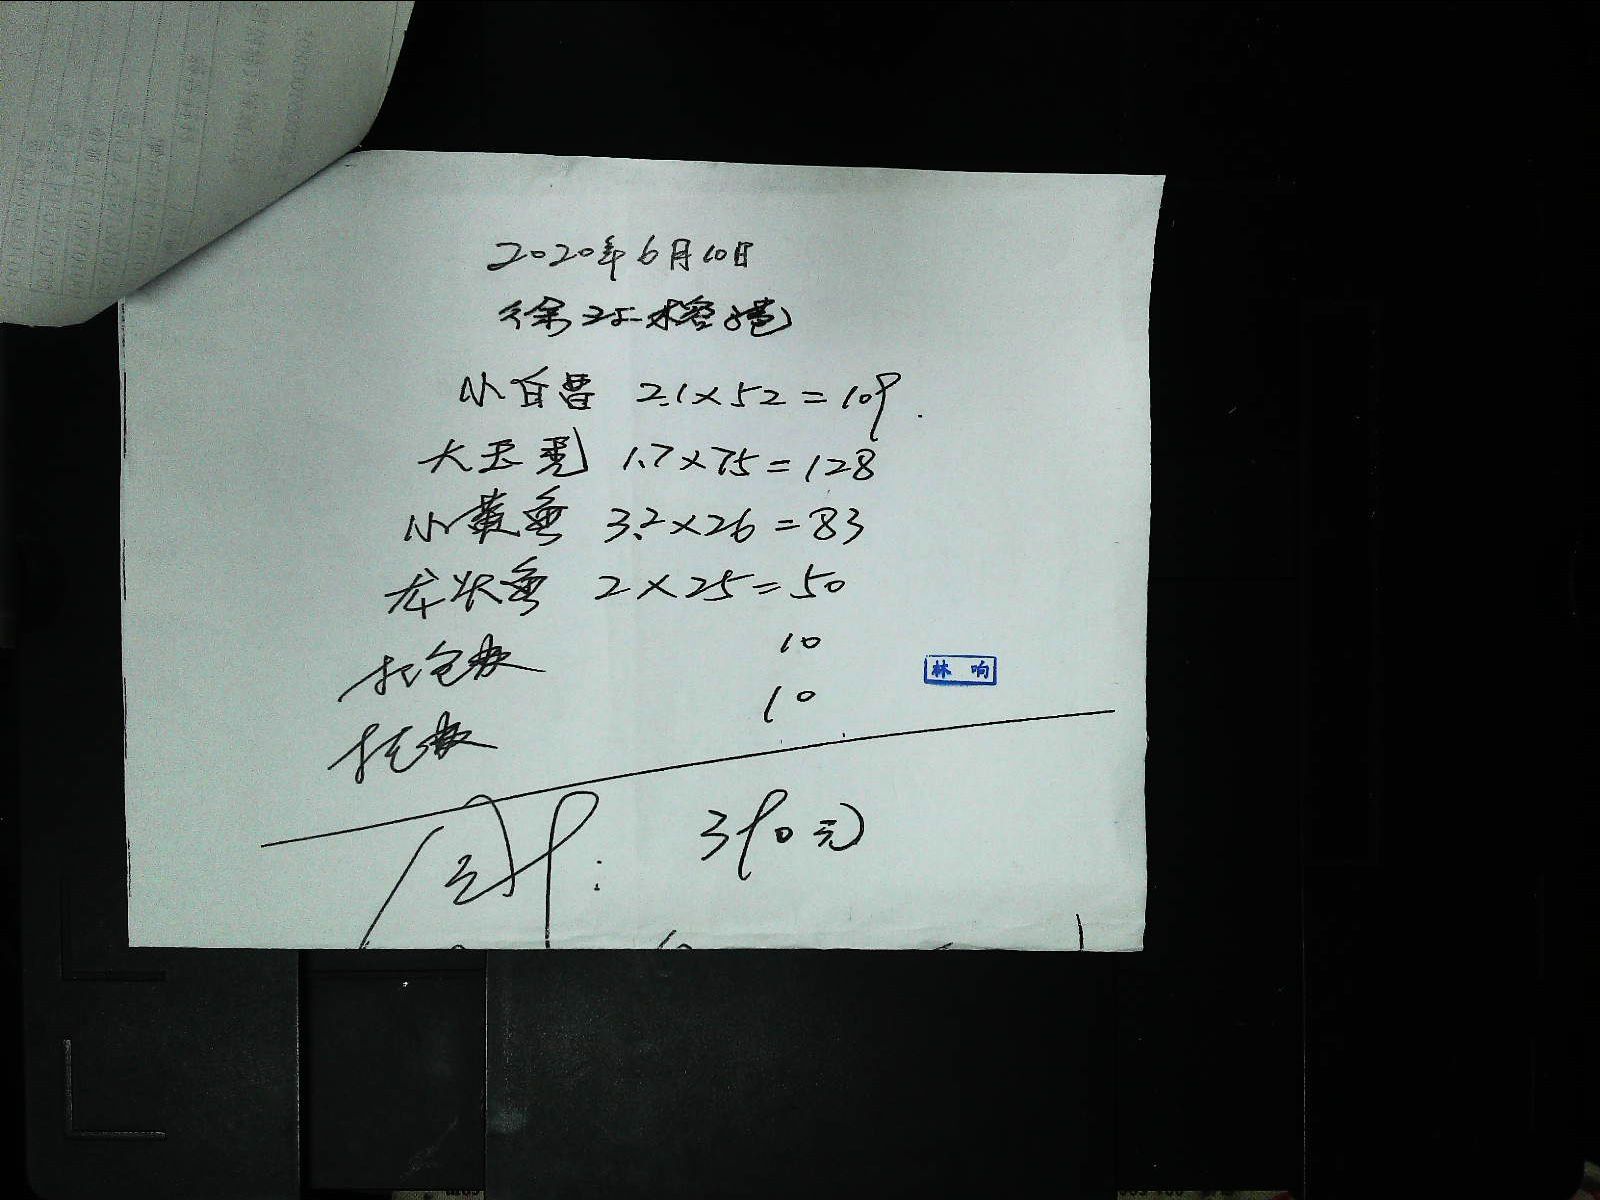 2020年6月10日
徐江榕港
小白鲳 2.1×52=109.
大玉秃 1.7×75=128
小黄鱼 3.2×26=83
龙头鱼 2×25=50
打包费 10
托费 10
林 响
合计: 390元